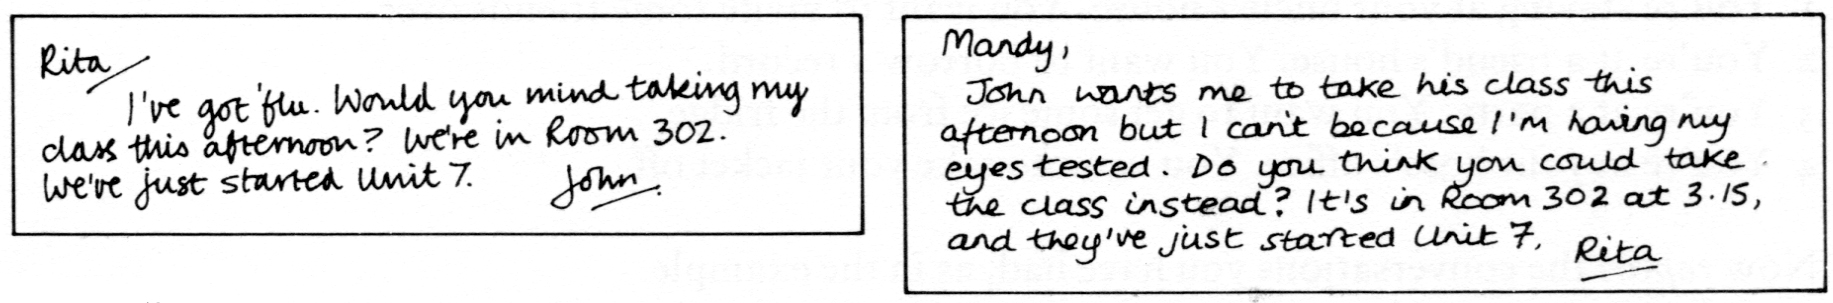 Rita
I've got 'flu. Would you mind taking my
class this afternoon? We're in Room 302.
We've just started Unit 7. John.
Mandy,
John wants me to take his class this
afternoon but I can't because I'm having my
eyes tested. Do you think you could take
the class instead? It's in Room 302 at 3.15,
and they've just started Unit 7. Rita